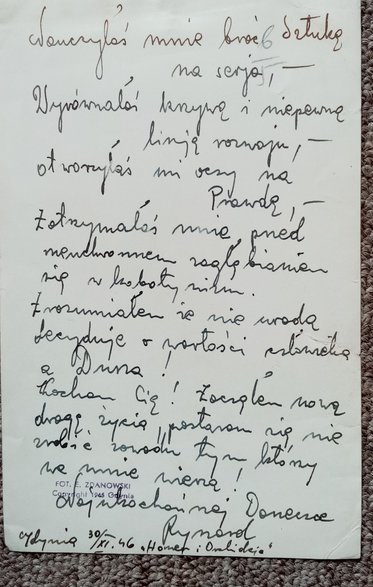 Nauczyłaś mnie brać Sztukę
na serjo, —
Wyrównałaś krzywą i niepewną
linję rozwoju, —
otworzyłaś mi oczy na
Prawdę, —
Zatrzymałaś mnie przed
zagłębianiem
się w kabotynizm.
Zrozumiałem że nie uroda
decyduje o wartości człowieka
a Dusza!
Kocham Cię! Zacząłem nową
drogę życia, postaram się nie
zrobić zawodu tym, którzy
we mnie wierzą!
FOT. E. ZDANOWSKI
Copyright 1946 Gdynia
Najukochańszej Danusce
Ryszard
Gdynia 30/XI. 46 „Homer i Orchidea"